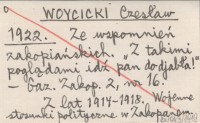 WOYCICKI Czesław
1922. Ze wspomnień
zakopiańskich. "Z takimi
poglądami idź pan do djabła!"
- Gaz. Zakop. 2, nr 16.
Z lat 1914-1918. Wojenne
stosunki polityczne w Zakopanem.